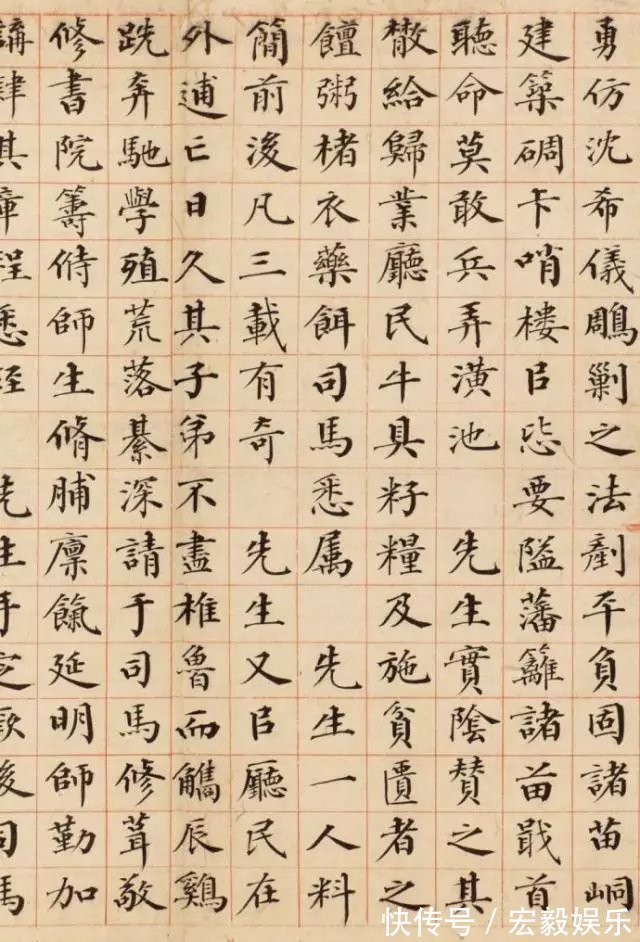 勇仿沈希儀鵰剿之法剷平負固諸苗峒
建築碉卡哨楼㠯毖要隘藩籬諸苗戢首
聽命莫敢兵弄潢池 先生實陰贊之其
散給歸業廳民牛具籽糧及施貧匱者之
饘粥楮衣藥餌司馬悉属 先生一人料
簡前後凡三載有奇 先生又㠯廳民在
外逋亡日久其子弟不盡椎魯而觿辰鷄
跣奔馳學殖荒落綦深請于司馬修葺敬
修書院籌偫師生脩脯廪餼延明師勤加
講肆其章程悉經 先生手定厥後司馬
快传号/宏毅娱乐